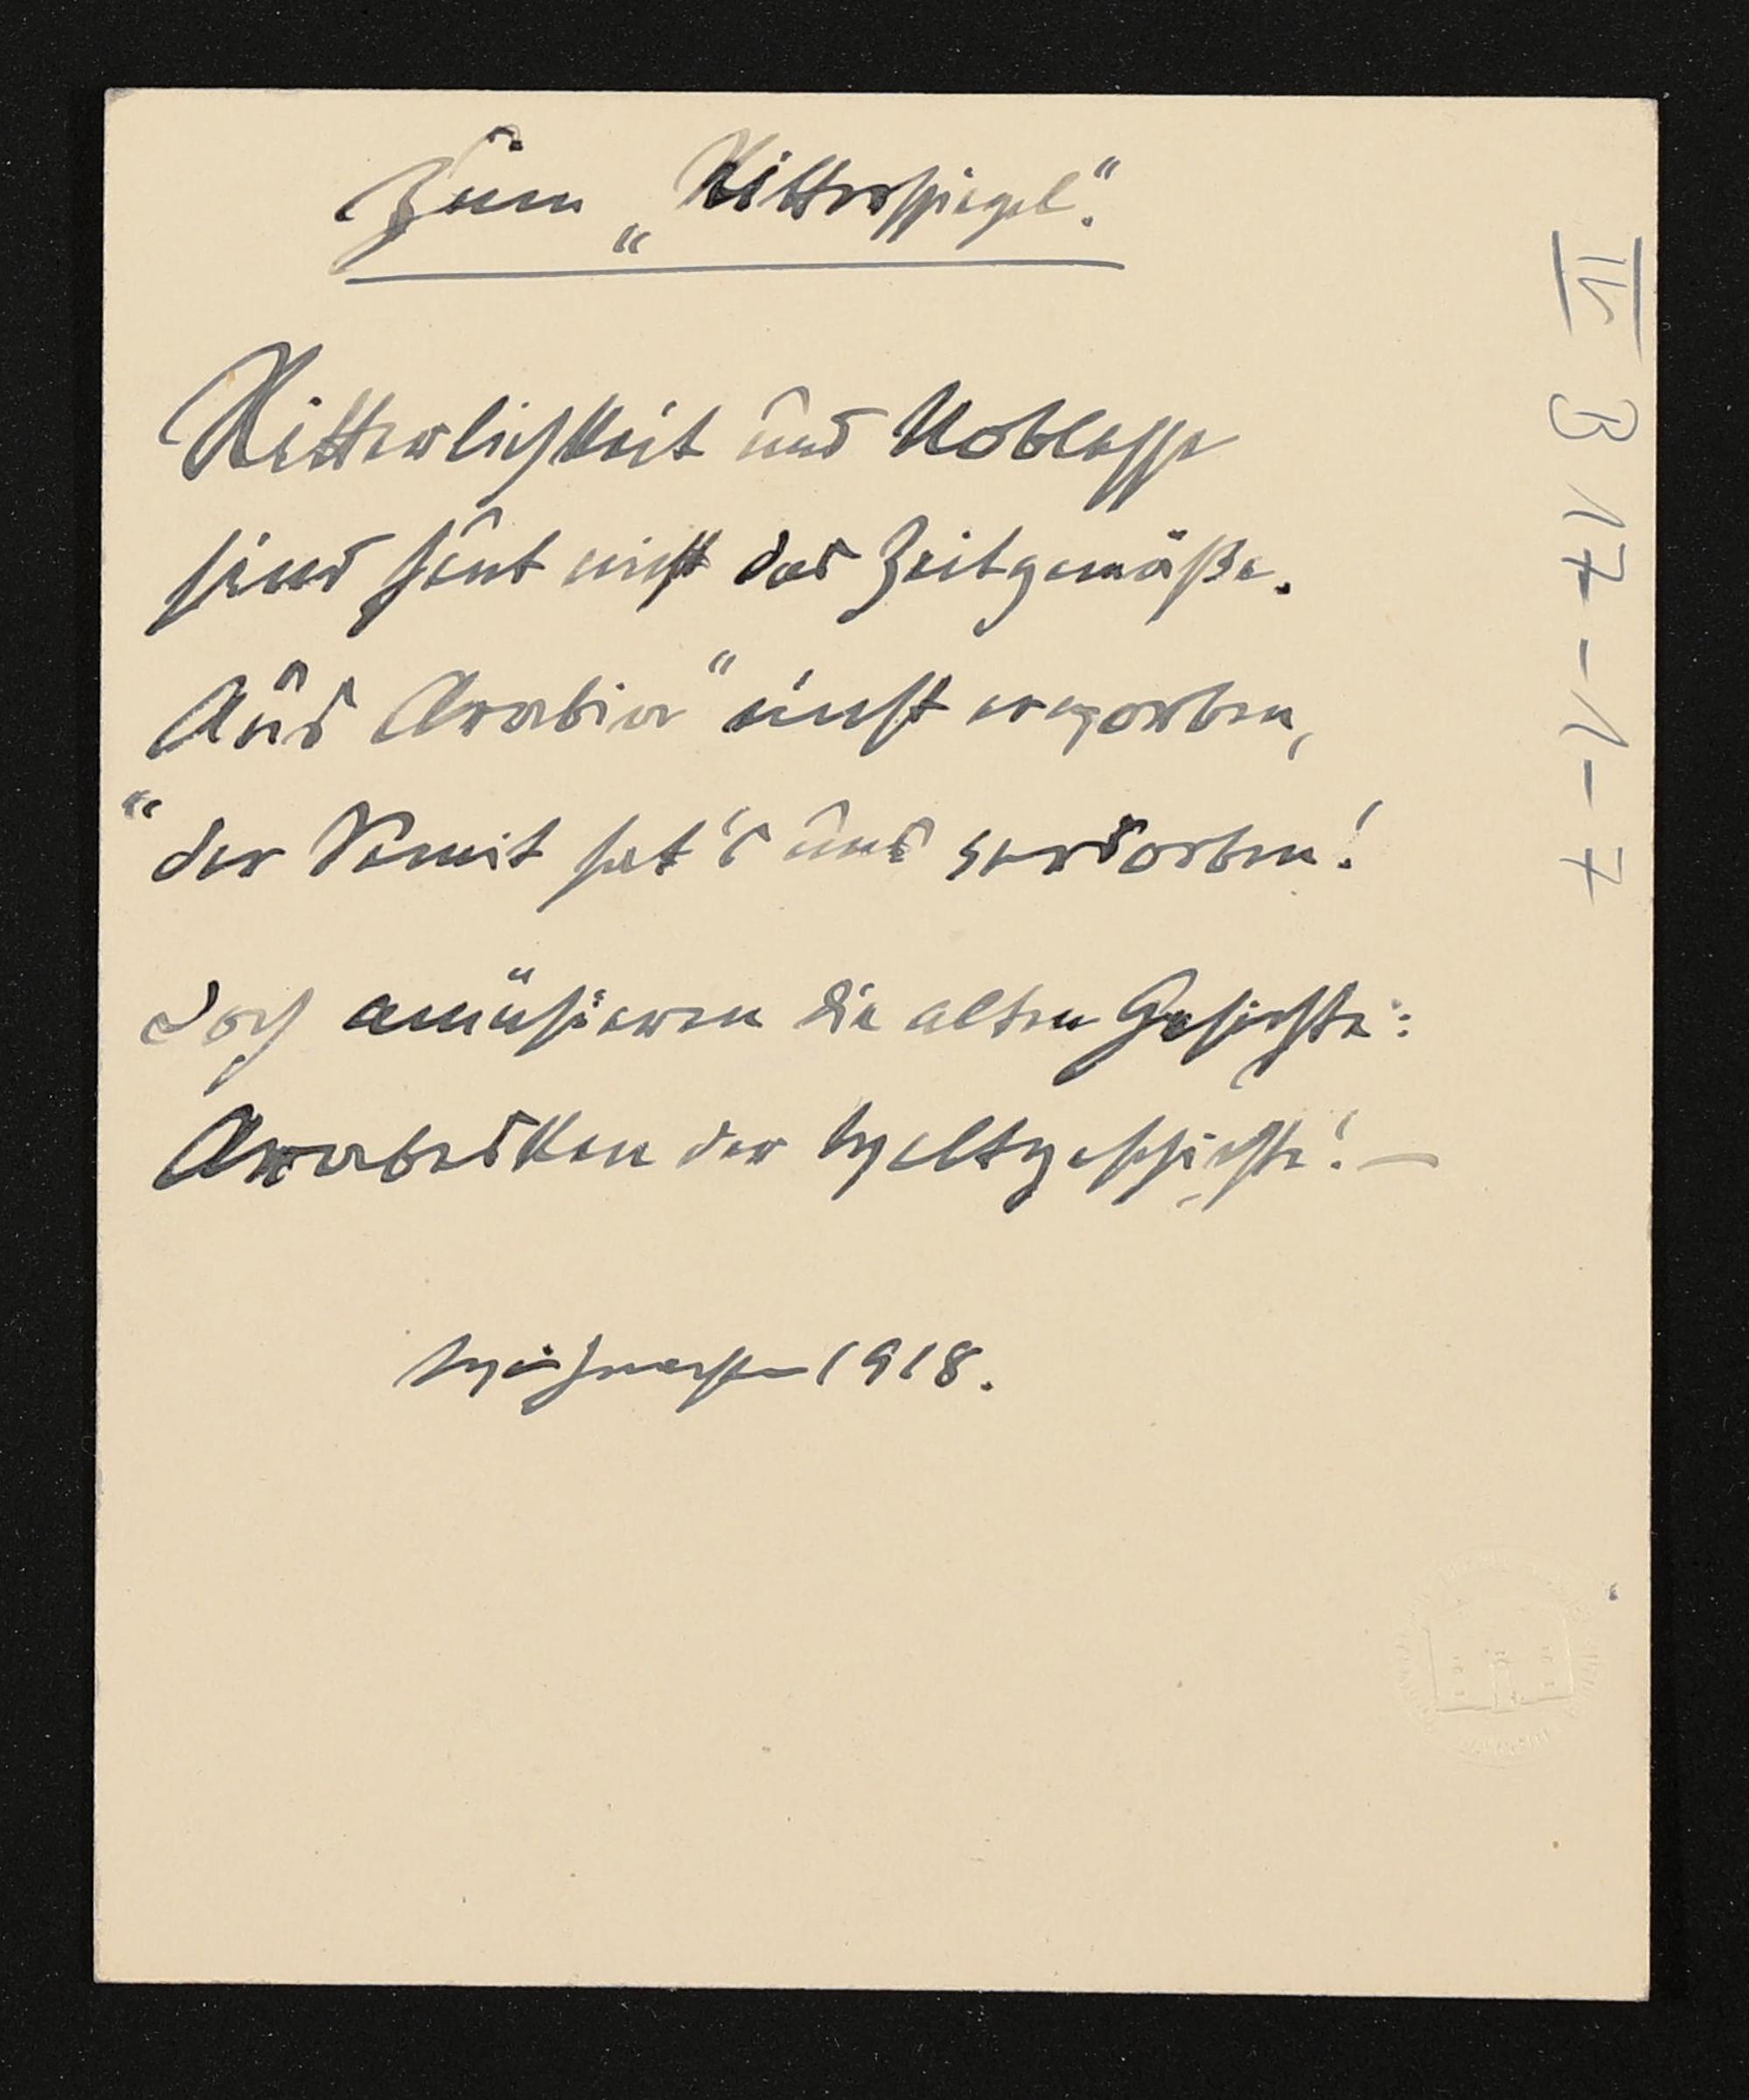 Zum „Ritterspiegel“.
Ritterlichkeit und Noblesse
sind heut nicht das Zeitgemäße.
Aus Arabia“ einst erworben,
“der Semit hat's uns verdorben!
Doch amüsieren die alten Gesichte:
Arabesken der Weltgeschichte! —
Weihnachten 1918.
IV B 17-1-7